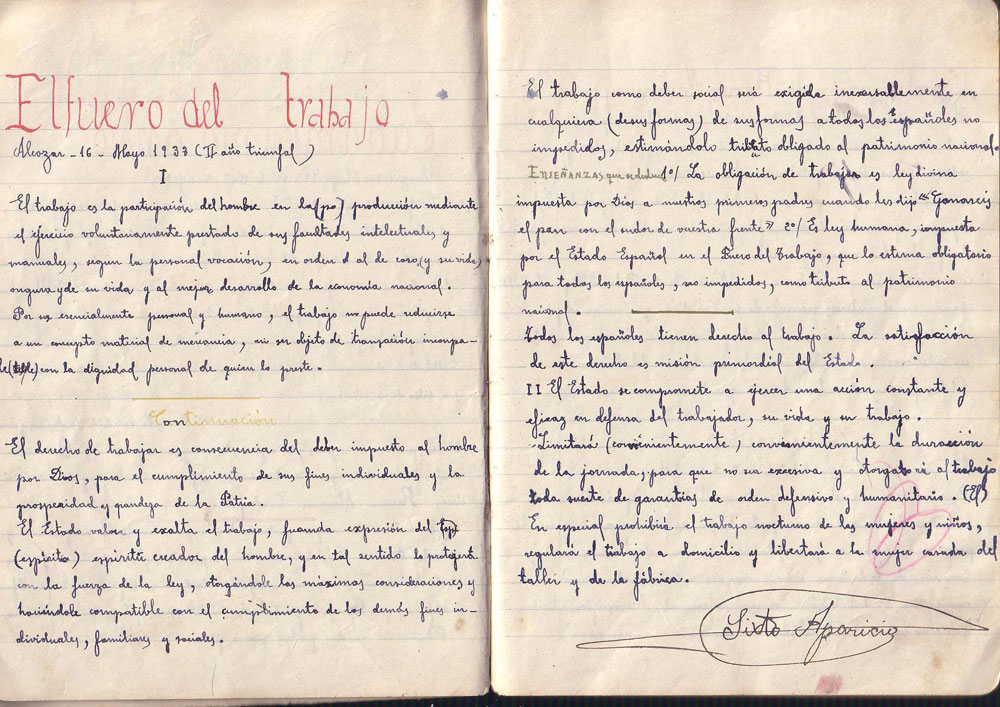 El fuero del trabajo
Alcozar - 16 - Mayo 1938 (II año triunfal)
I
El trabajo es la participación del hombre en la (po) producción mediante
el ejercicio voluntariamente prestado de sus facultades intelectuales y
manuales, segun la personal vocación, en orden d al de coro (y su vida)
ongura y de su vida y al mejor desarrollo de la economía nacional.
Por ser esencialmente personal y humano, el trabajo no puede reducirse
a un concepto material de mercancia, ni ser objeto de transación incompa-
ble con la dignidad personal de quien lo preste.
Continuación
El derecho de trabajar es consecuencia del deber impuesto al hombre
por Dios, para el cumplimiento de sus fines individuales y la
prosperidad y grandeza de la Patria.
El Estado valora y exalta el trabajo, fecunda expresión del
(espirito) espiritu creador del hombre, y en tal sentido lo protejerá
con la fuerza de la ley, otorgándole las máximas consideraciones y
haciéndole compatible con el cumplimiento de los demás fines in-
dividuales, familiares y sociales.
El trabajo como deber social será exigido inexcusablemente en
cualquiera (de sus formas) de sus formas a todos los Españoles no
impedidos, estimándolo tributo obligado al patrimonio nacional.
ENSEÑANZAS que se deducen 1º/ La obligación de trabajar es ley divina
impuesta por Dios a nuestros primeros padres cuando les dijo "Ganareis
el pan con el sudor de vuestra frente" 2º/ Es ley humana, impuesta
por el Estado Español en el Fuero del Trabajo, que lo estima obligatorio
para todos los españoles, no impedidos, como tributo al patrimonio
nacional.
Todos los españoles tienen derecho al trabajo. La satisfacción
de este derecho es misión primordial del Estado.
II El Estado se compromete a ejercer una acción constante y
eficaz en defensa del trabajador, su vida y su trabajo.
Limitará (convenientemente) convenientemente la duración
de la jornada, para que no sea excesiva y otorgará al trabajo
toda suerte de garantías de orden defensivo y humanitario. (El)
En especial prohibirá el trabajo nocturno de las mujeres y niños,
regulará el trabajo a domicilio y libertará a la mujer casada del
taller y de la fábrica.
Sixto Aparicio